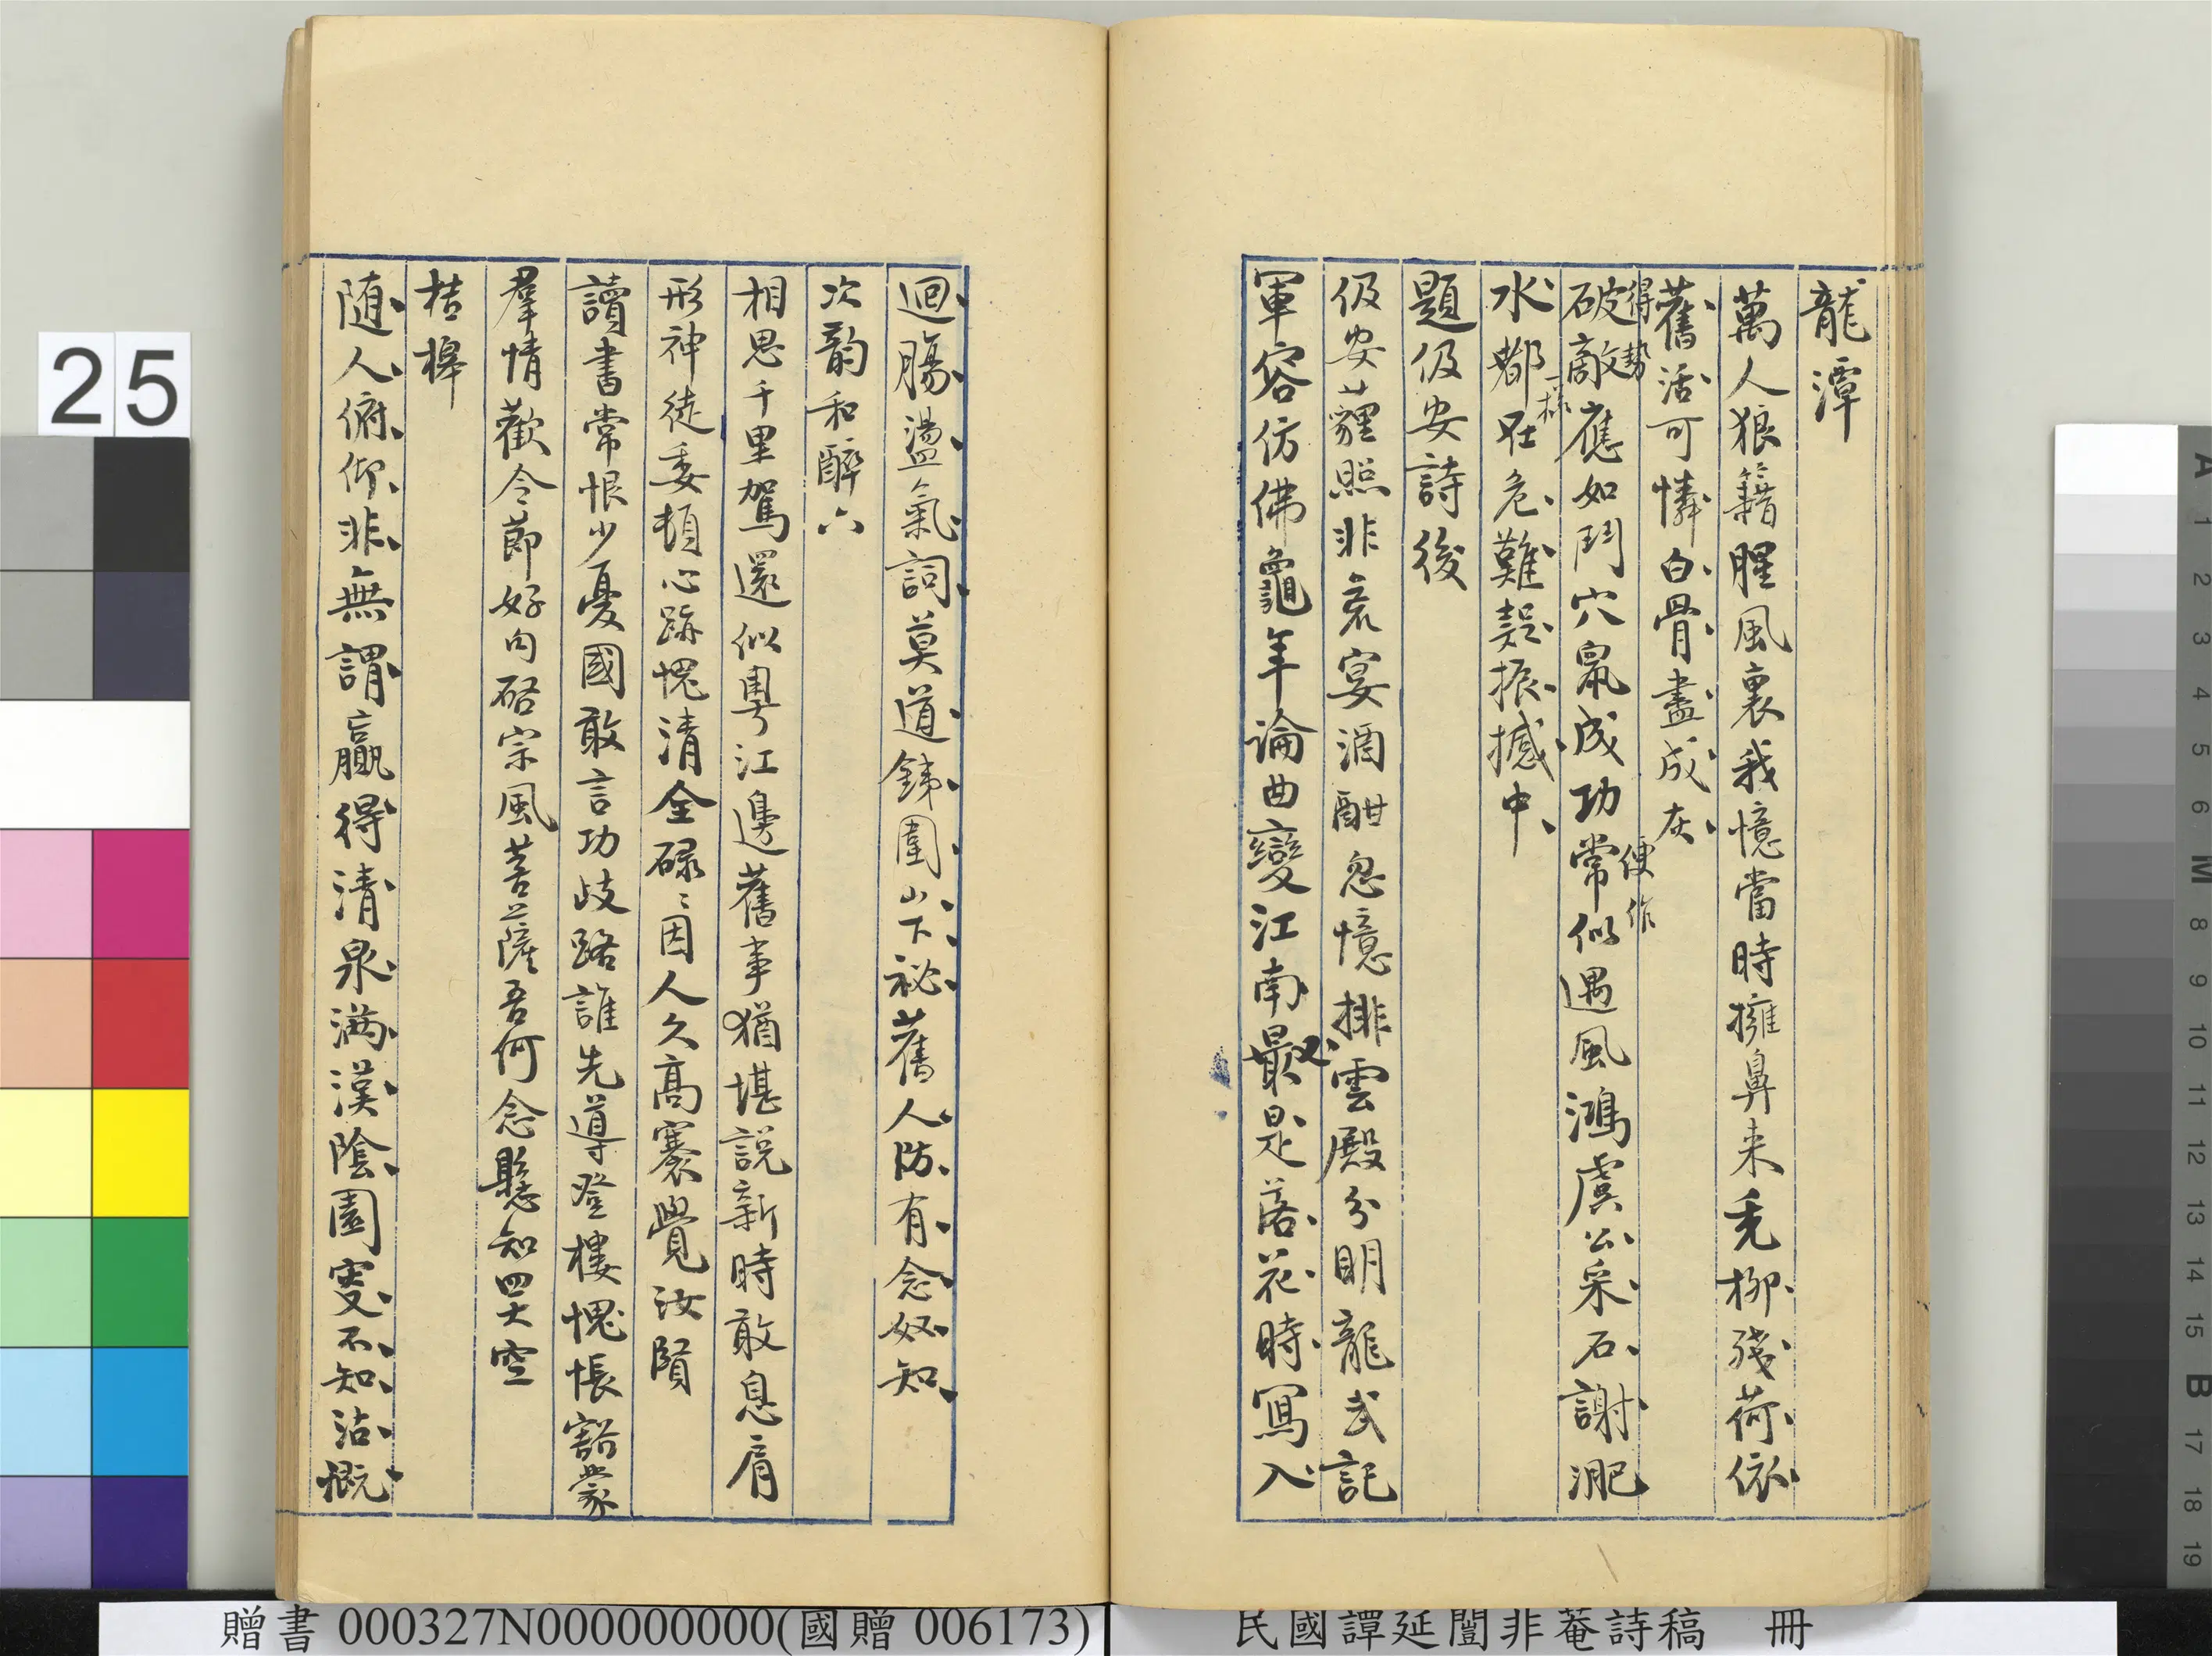 龍潭
萬人狼籍腥風裏我憶當時擁鼻來禿柳殘荷依
舊活可憐白骨盡成灰
得勢
破敵應如鬥穴鼠成功常似遇風鴻虞公采石謝淝
便作
一樣
水都在危難震撼中
題伋安詩後
伋安蘿照非哀宴酒酣忽憶排雲殿分明龍武記
軍容仿佛龜年論曲變江南最是落花時寫入
又
迴腸盪氣詞莫道銕圍山下祕舊人防有念奴知
次韵和醉六
相思千里駕還似粵江邊舊事猶堪說新時敢息肩
形神徒委頓心跡愧清全碌〻因人久高騫覺汝賢
讀書常恨少憂國敢言功歧路誰先導登樓愧悵豁蒙
羣情歡令節好句啓宗風菩薩吾何念懸知四大空
桔槔
随人俯仰非無謂贏得清泉滿漢陰園叟不知沾概
25
贈書 000327N000000000(國贈 006173)
民國譚延闓非菴詩稿 冊
A 1 2 3 4 5 6 M 8 9 10 11 12 13 14 15 B 17 18 19